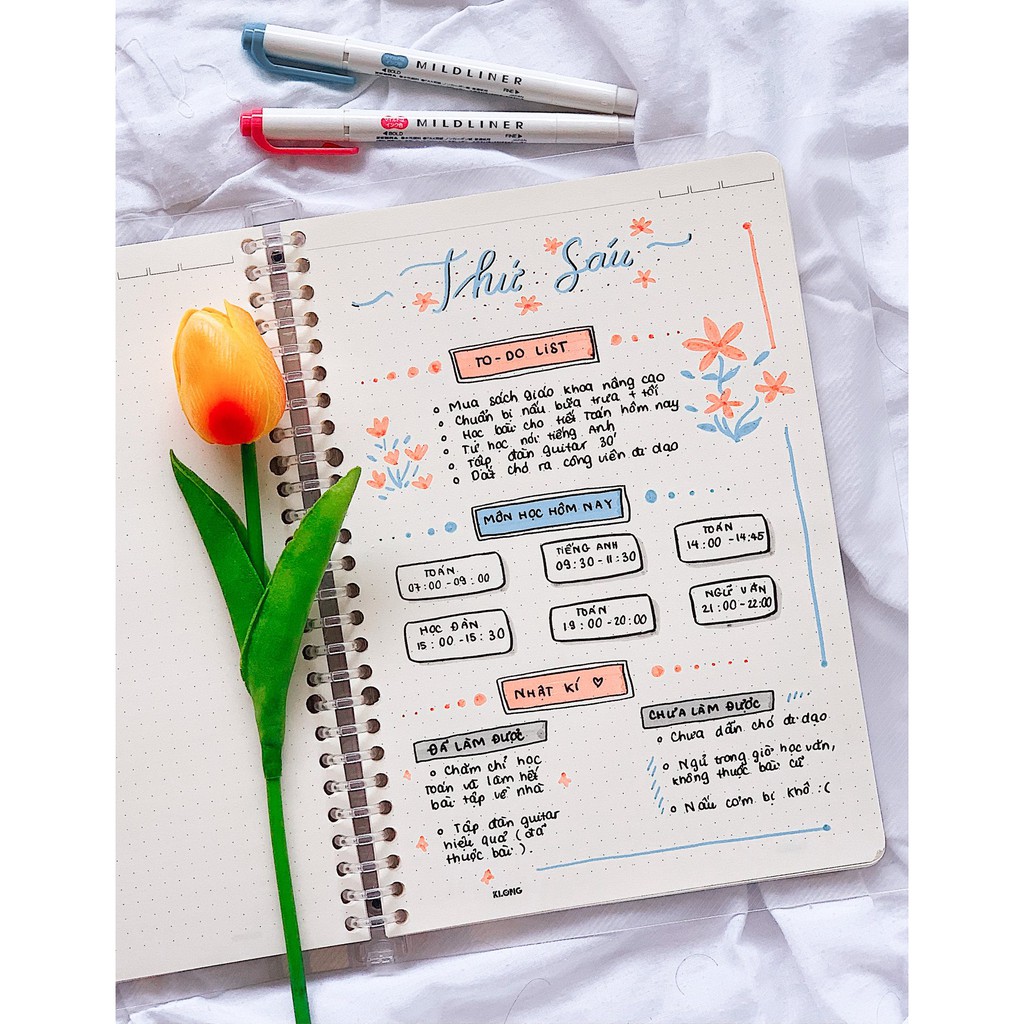 MILDLINER
◀BOLD
FINE▶
MILDLINER
◀BOLD
FINE▶
Thứ Sáu
TO-DO LIST
Mua sách giáo khoa nâng cao
Chuẩn bị nấu bữa trưa + tối
Học bài cho tiết Toán hôm nay
Tự học nói tiếng Anh
Tập đàn guitar 30'
Dắt chó ra công viên đi dạo
MÔN HỌC HÔM NAY
TOÁN
07:00-09:00
TIẾNG ANH
09:30-11:30
TOÁN
14:00-14:45
HỌC ĐÀN
15:00-15:30
TOÁN
19:00-20:00
NGỮ VĂN
21:00-22:00
NHẬT KÍ ♡
ĐÃ LÀM ĐƯỢC
Chăm chỉ học
Toán và làm hết
bài tập về nhà
Tập đàn guitar
hiệu quả (đã
thuộc bài).
CHƯA LÀM ĐƯỢC
Chưa dẫn chó đi dạo
Ngủ trong giờ học văn,
không thuộc bài cũ
Nấu cơm bị khô :(
KLONG